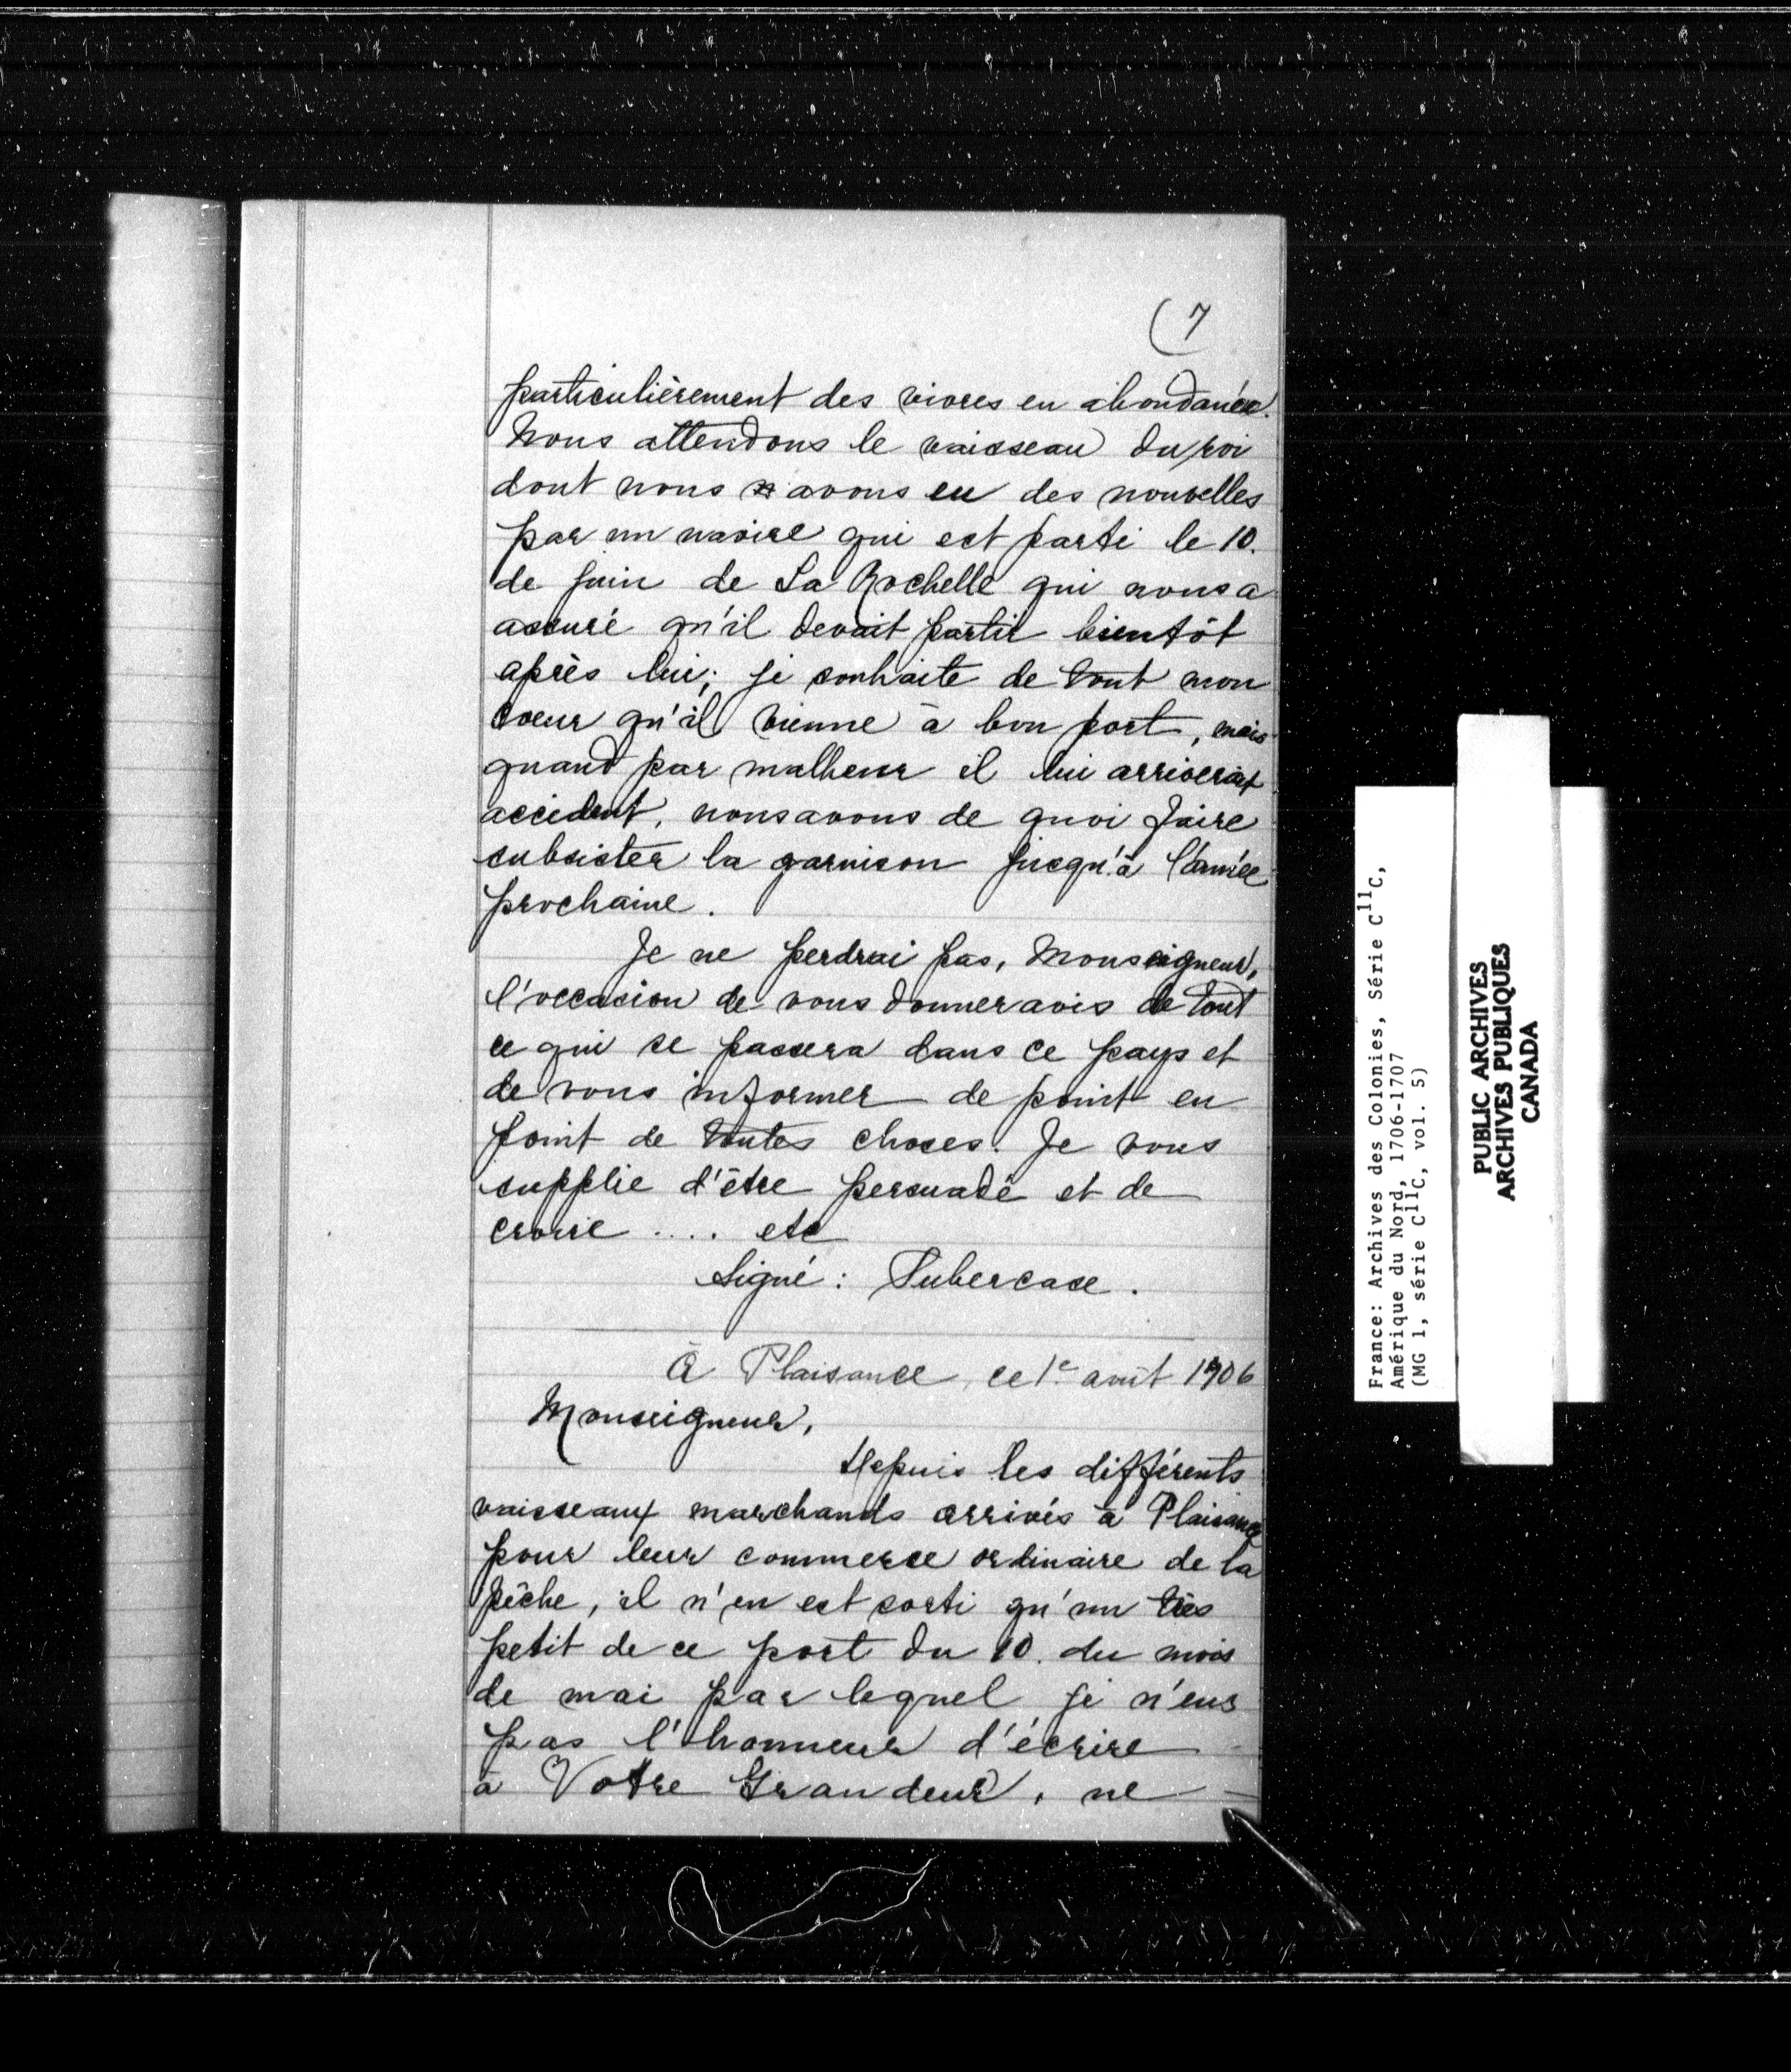 (7
particulièrement des vivres en abondance.
Nous attendons le vaisseau du roi
dont nous avons eu des nouvelles
par un navire qui est parti le 10.
de juin de La Rochelle qui nous a
assuré qu'il devait partir bientôt
après lui; je souhaite de tout mon
coeur qu'il vienne à bon port, mais
quand par malheur il lui arriverait
accident, nous avons de quoi faire
subsister la garnison jusqu'à l'année
prochaine.
Je ne perdrai pas, Monseigneur,
l'occasion de vous donner avis de tout
ce qui se passera dans ce pays et
de vous informer de point en
point de toutes choses. Je vous
supplie d'être persuadé et de
croire .... etc
Signé: Subercase.
À Plaisance, ce 1e août 1706
Monseigneur,
Depuis les différents
vaisseaux marchands arrivés à Plaisance
pour leur commerce ordinaire de la
pêche, il n'en est sorti qu'un très
petit de ce port du 10. du mois
de mai par lequel je n'eus
pas l'honneur d'écrire
à Votre Grandeur, ne
France: Archives des Colonies, Série C11C,
Amérique du Nord, 1706-1707
(MG 1, série C11C, vol. 5)
PUBLIC ARCHIVES
ARCHIVES PUBLIQUES
CANADA